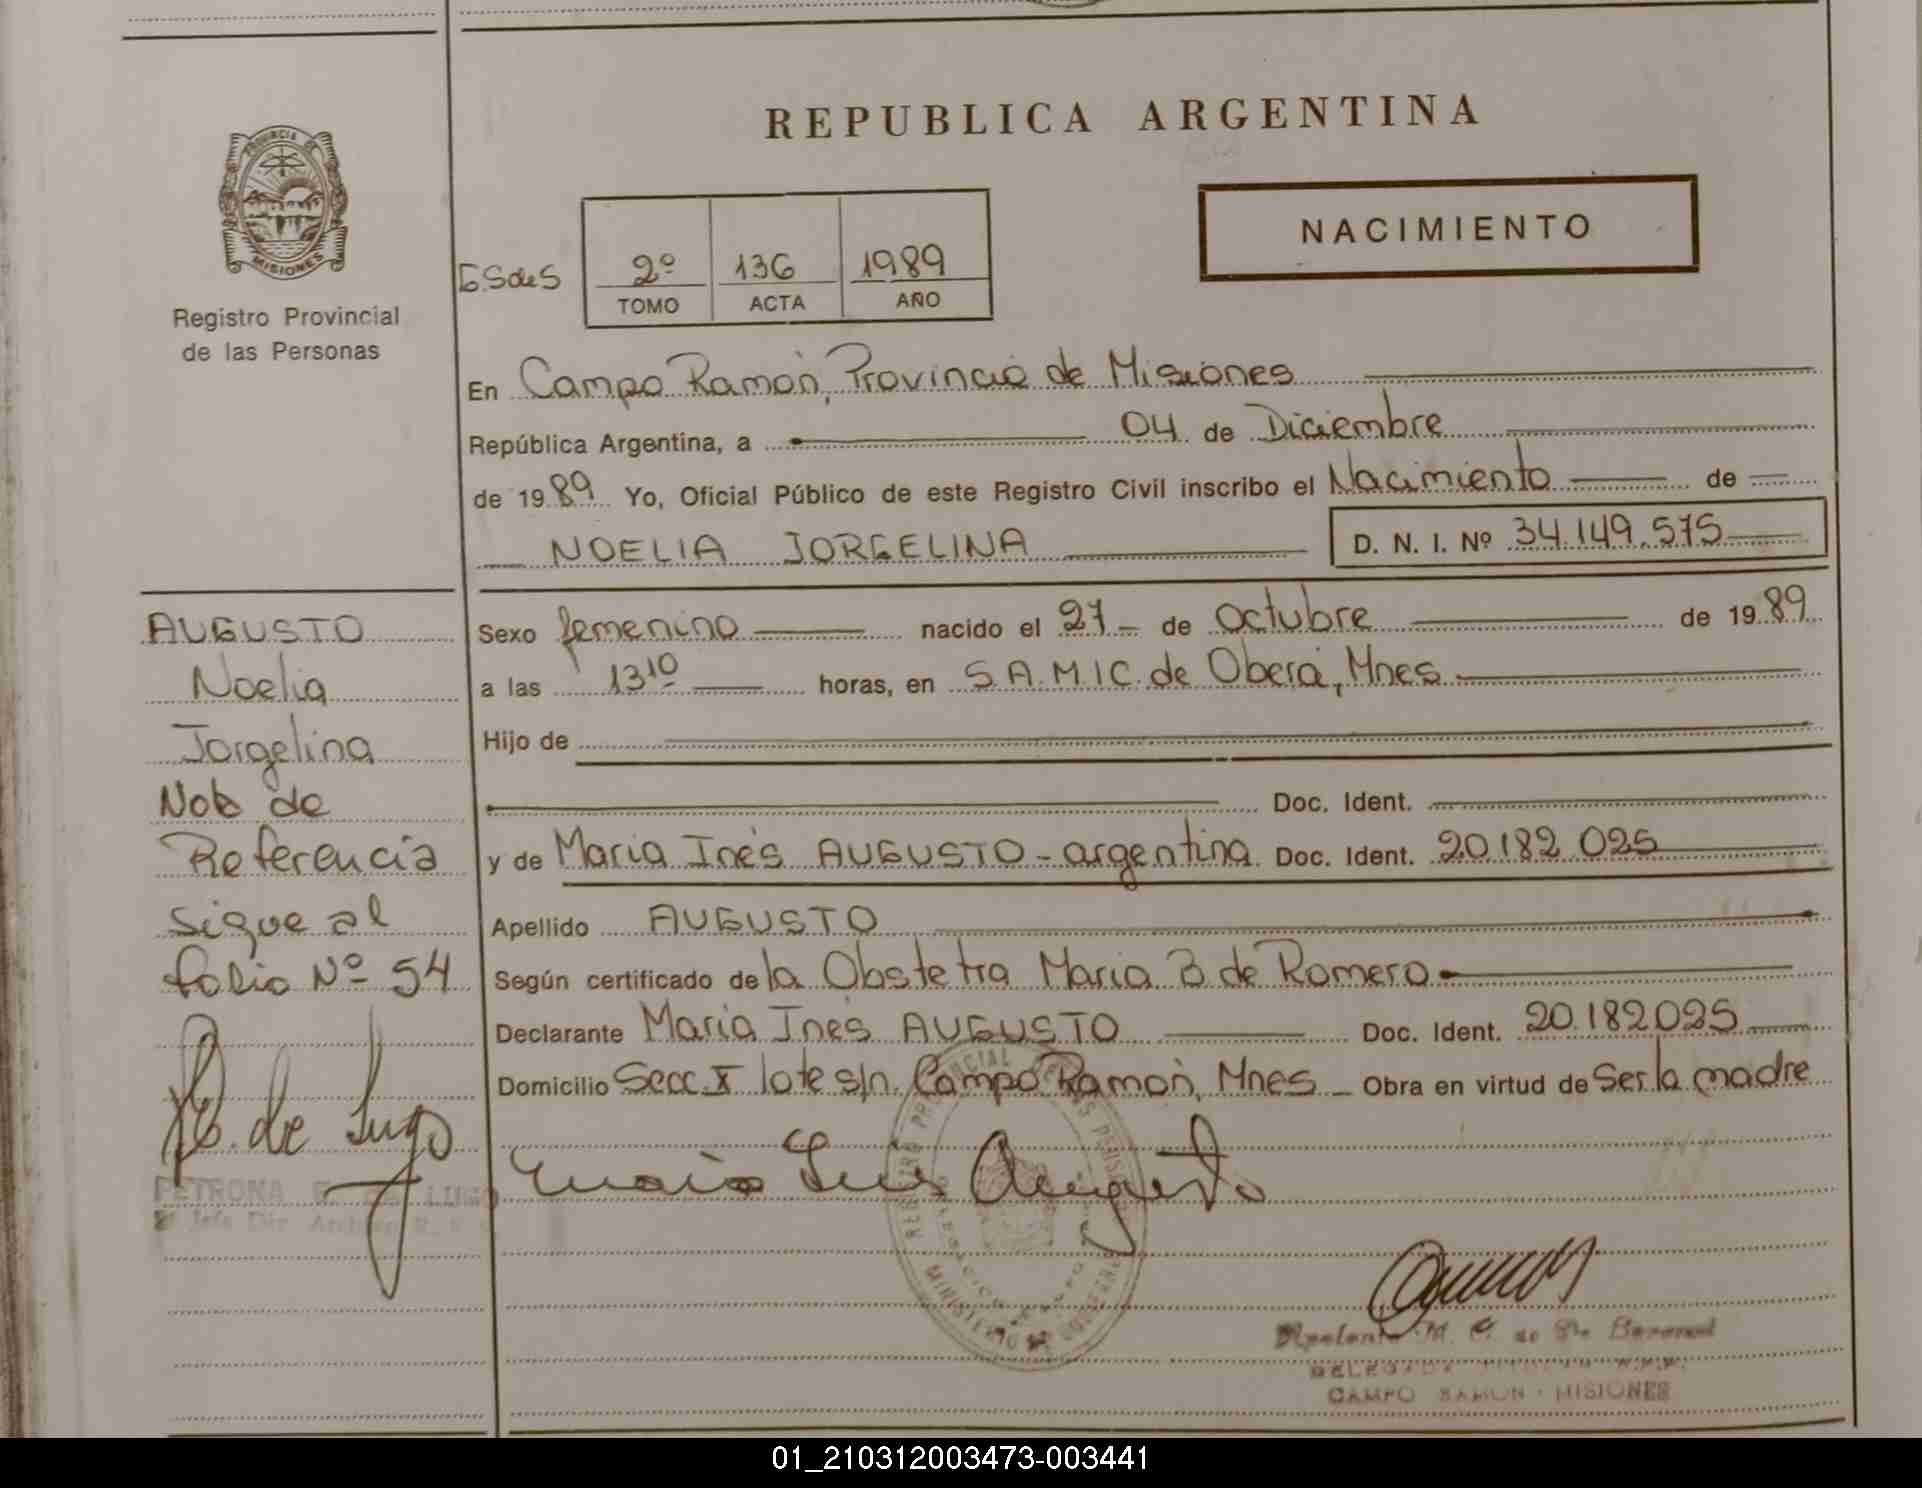 REPUBLICA ARGENTINA
PROVINCIA DE
MISIONES
Registro Provincial
de las Personas
NACIMIENTO
2º 136 1989
TOMO ACTA AÑO
En Campo Ramón, Provincia de Misiones
República Argentina, a 04 de Diciembre
de 1989 Yo, Oficial Público de este Registro Civil inscribo el Nacimiento de
NOELIA JORGELINA D. N. I. Nº 34.149.575
AUGUSTO
Noelia
Jorgelina
Nota de
Referencia
sigue al
folio Nº 54
Sexo femenino nacido el 27 de Octubre de 1989
a las 1310 horas, en S.A.M.I.C. de Oberá, Mnes
Hijo de
Doc. Ident.
y de Maria Inés AUGUSTO - argentina Doc. Ident. 20.182.025
Apellido AUGUSTO
Según certificado de la Obstetra Maria B. de Romero
Declarante Maria Inés AUGUSTO Doc. Ident. 20.182.025
Domicilio Secc. X lote s/n. Campo Ramón, Mnes Obra en virtud de Ser la madre
de Lugo
Maria Ines Augusto
PETRONA E. DE LUGO
CAMPO RAMON - MISIONES
01_210312003473-003441